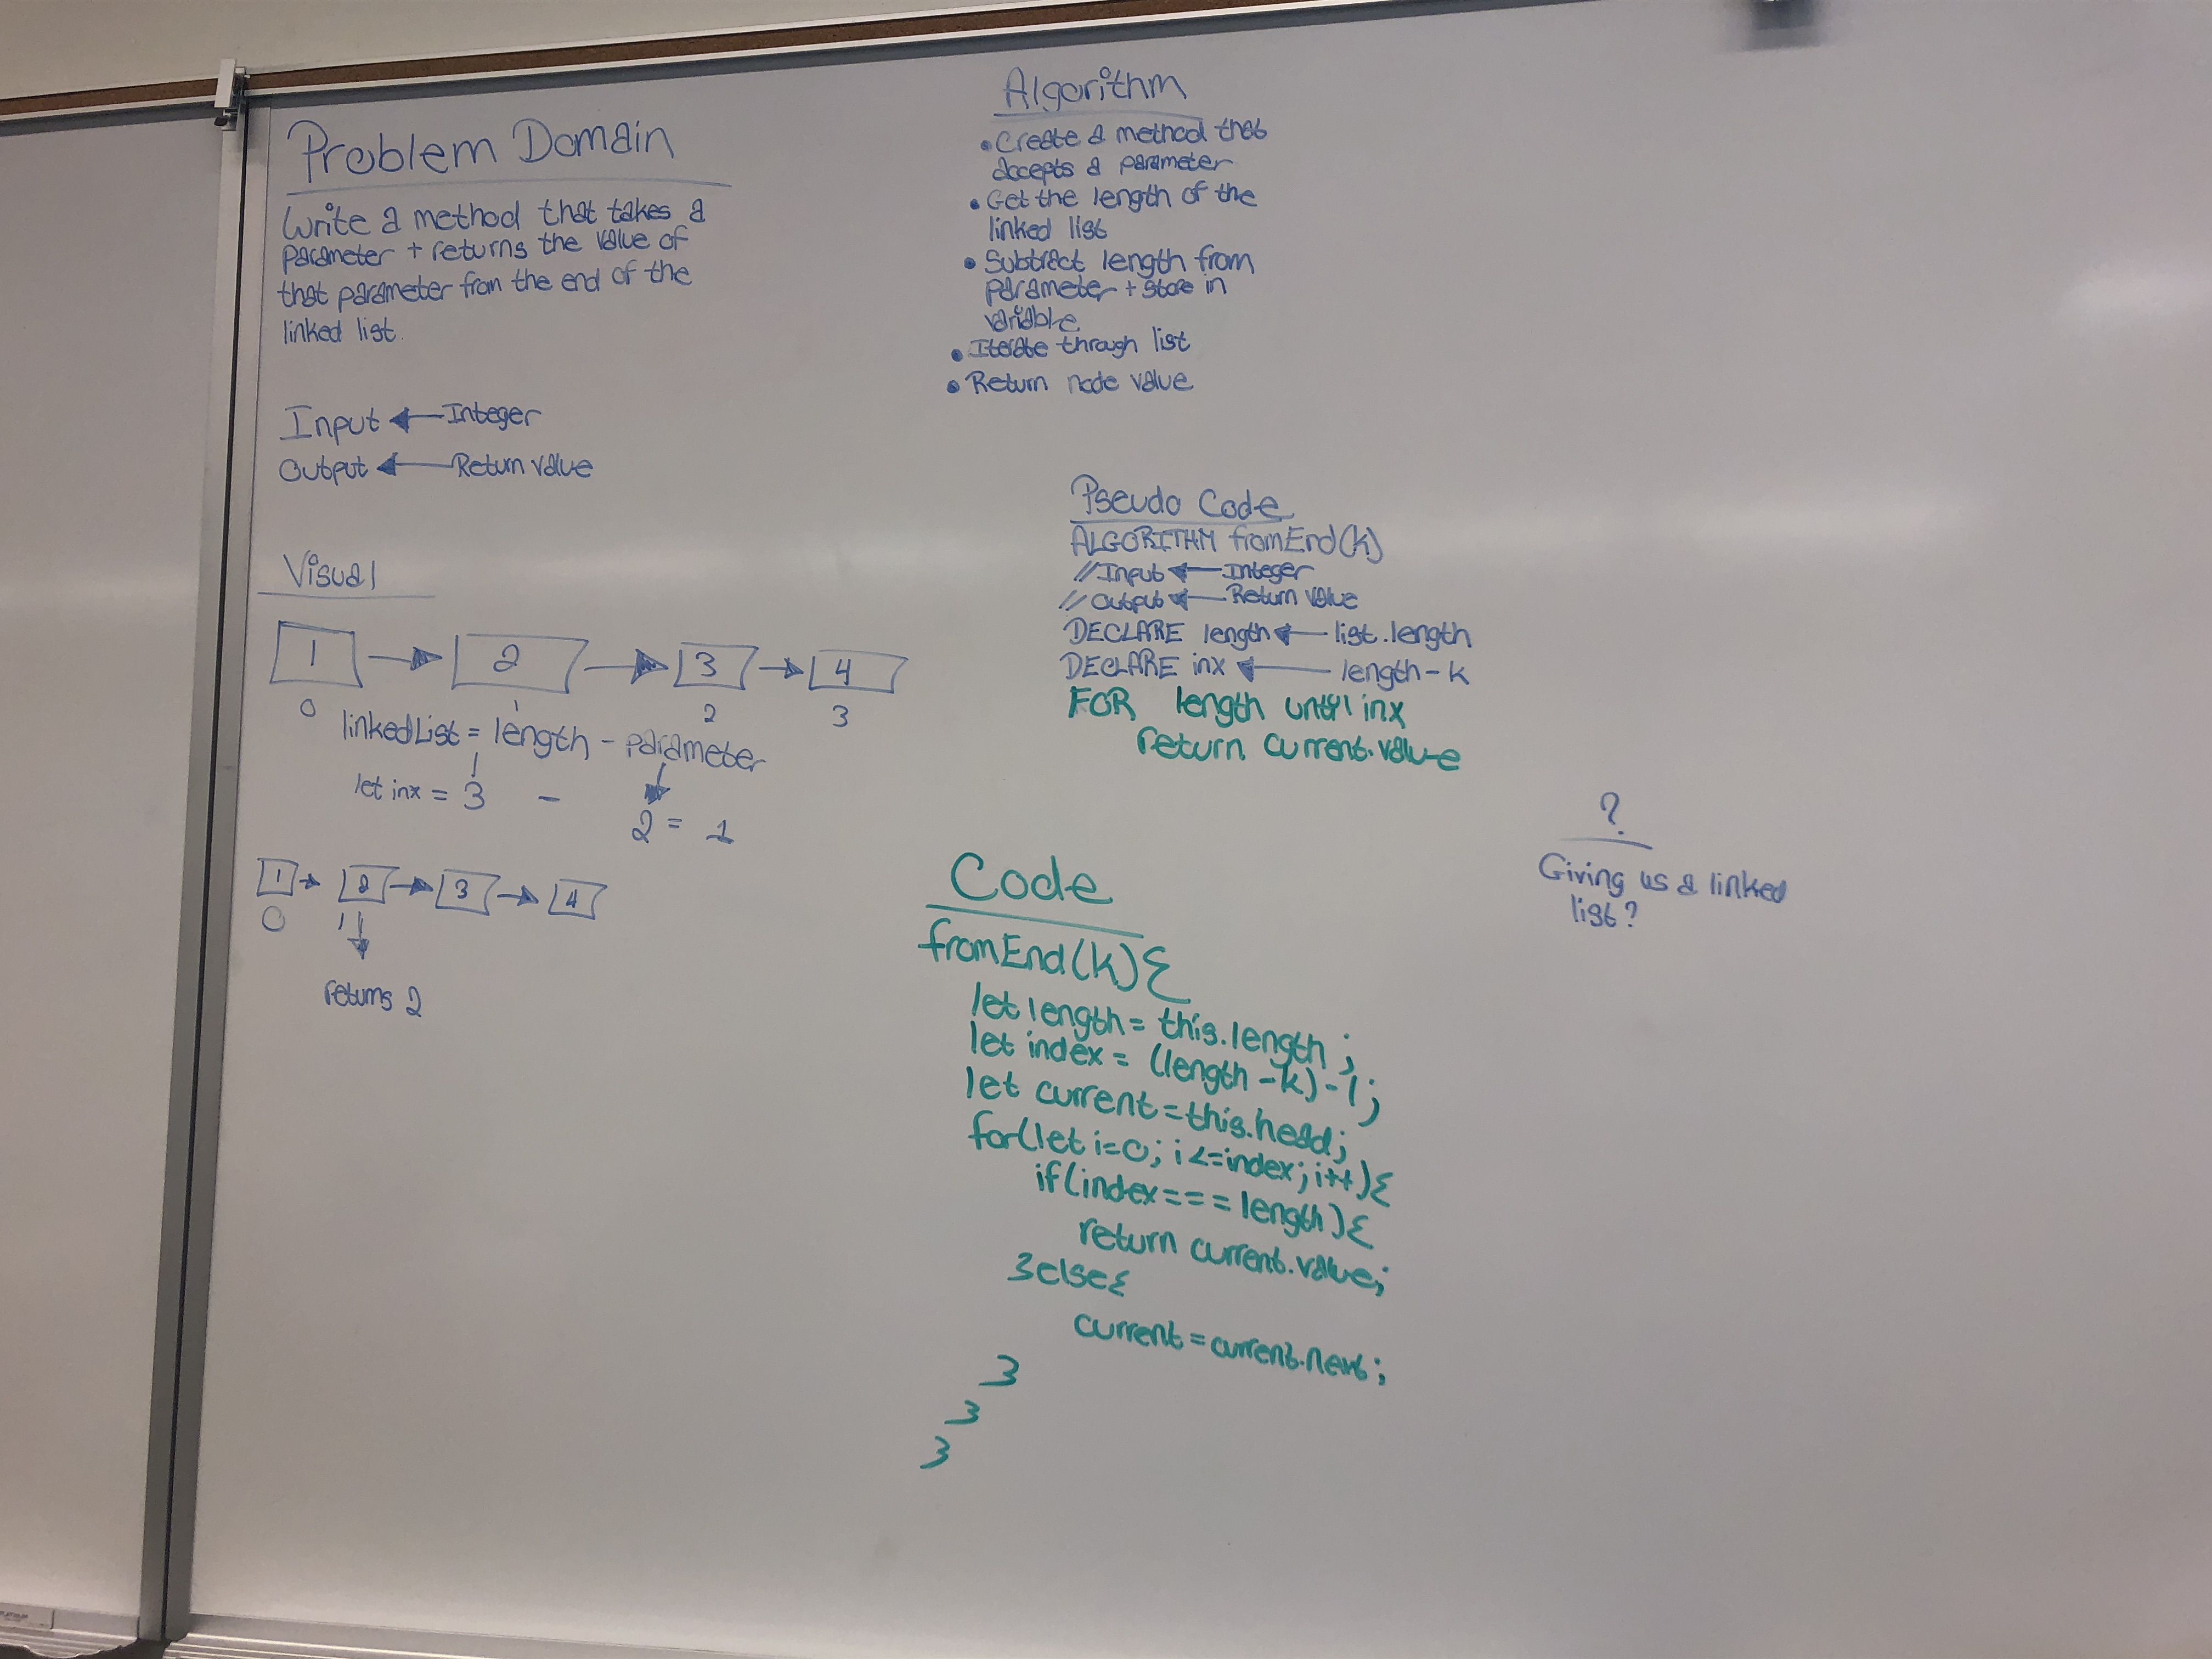 Problem Domain
Write a method that takes a
parameter + returns the value of
that parameter from the end of the
linked list.
Input ← Integer
Output ← Return value
Visual
1 → 2 → 3 → 4
0 1 2 3
linkedList = length - parameter
let inx = 3 - 2 = 1
1 → 2 → 3 → 4
0 1
returns 2
Algorithm
• Create a method that
accepts a parameter
• Get the length of the
linked list
• Subtract length from
parameter + store in
variable
• Iterate through list
• Return node value
Pseudo Code
ALGORITHM fromEnd(k)
// Input ← Integer
// Output ← Return value
DECLARE length ← list.length
DECLARE inx ← length - k
FOR length until inx
return current.value
?
Giving us a linked
list?
Code
fromEnd(k){
let length = this.length;
let index = (length - k) - 1;
let current = this.head;
for(let i=0; i<=index; i++){
if(index === length){
return current.value;
}else{
current = current.next;
}
}
}